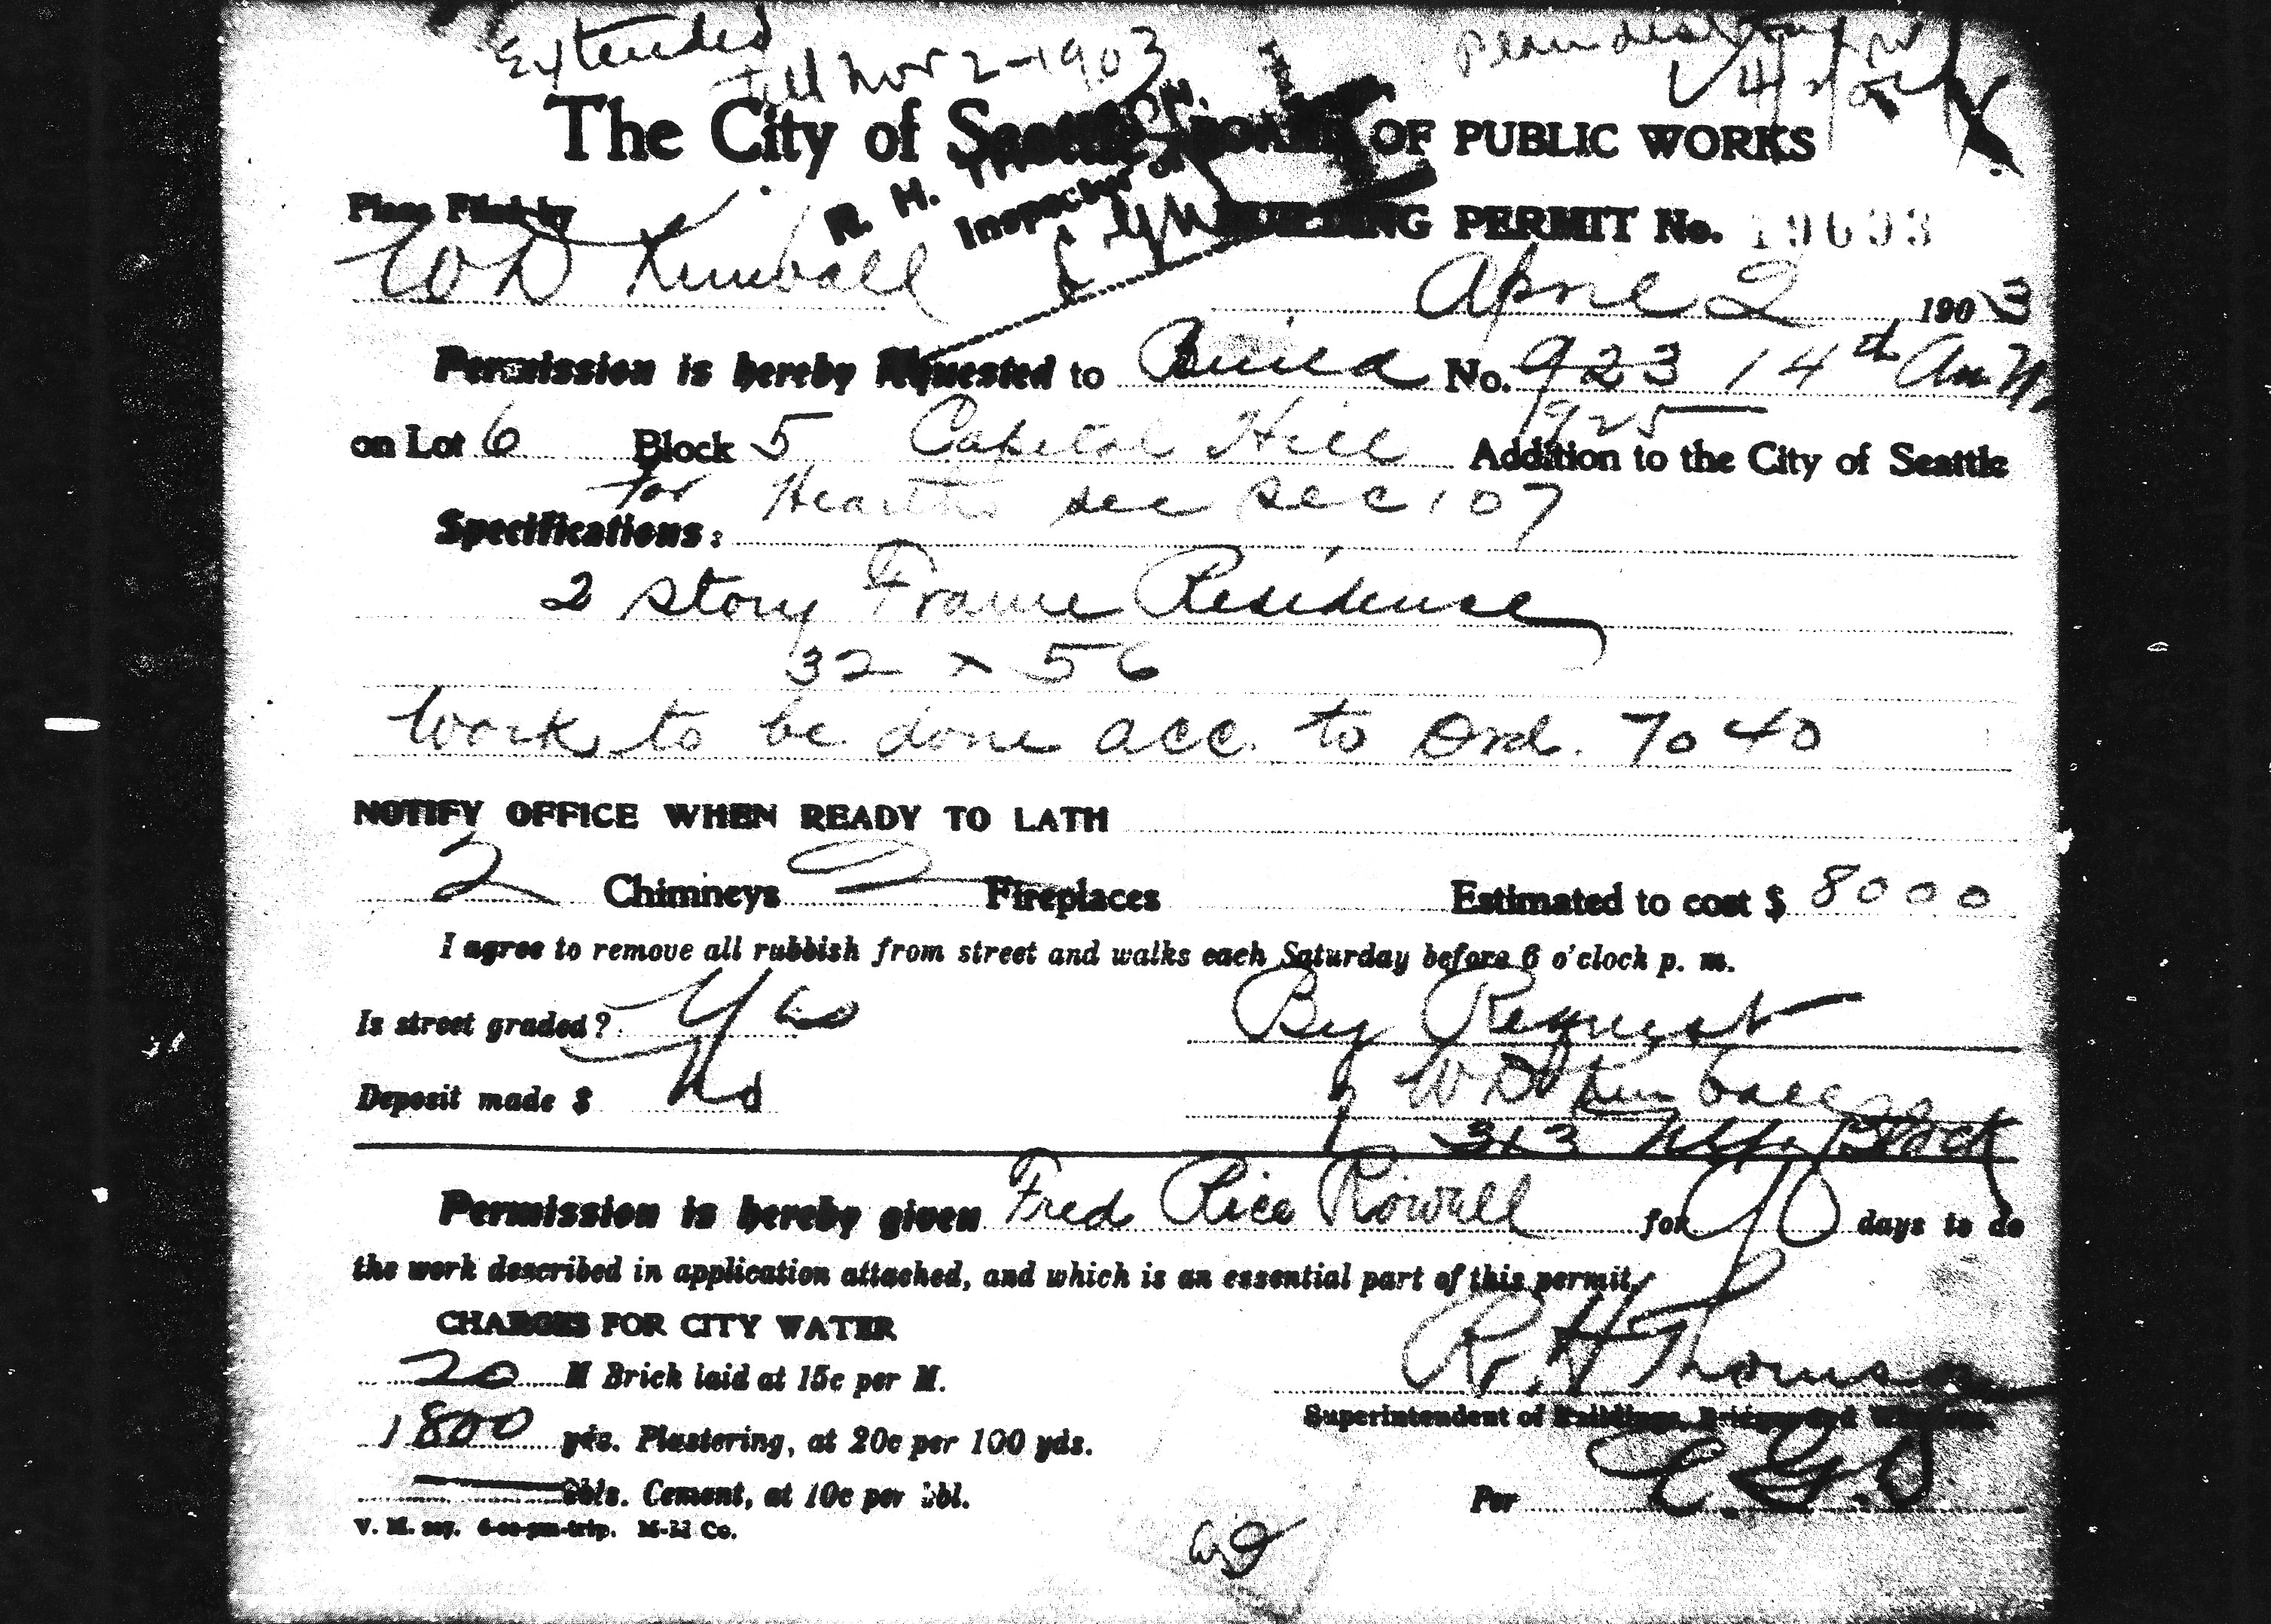 Extended
till Nov 2-1903
The City of Seattle BOARD OF PUBLIC WORKS
R. H.
Inspector of
Plans Filed by
W D Kimball
BUILDING PERMIT No.
April 2 1903
Permission is hereby Requested to Build No. 923 14th Av N
on Lot 6 Block 5 Capitol Hill Addition to the City of Seattle
925
for Hearths see sec 107
Specifications:
2 story Frame Residence
32 x 56
Work to be done acc. to Ord. 7040
NOTIFY OFFICE WHEN READY TO LATH
2 Chimneys 2 Fireplaces Estimated to cost $ 8000
I agree to remove all rubbish from street and walks each Saturday before 6 o'clock p. m.
Is street graded? Yes By Request
Deposit made $ No of W D Kimball
313 Block
Permission is hereby given Fred Rice Rowell for 90 days to do
the work described in application attached, and which is an essential part of this permit.
CHARGES FOR CITY WATER
R. H Thomson
20 M Brick laid at 15c per M.
Superintendent of Buildings, Bridges and Wharves.
1800 yds. Plastering, at 20c per 100 yds.
Bbls. Cement, at 10c per bbl.
Per